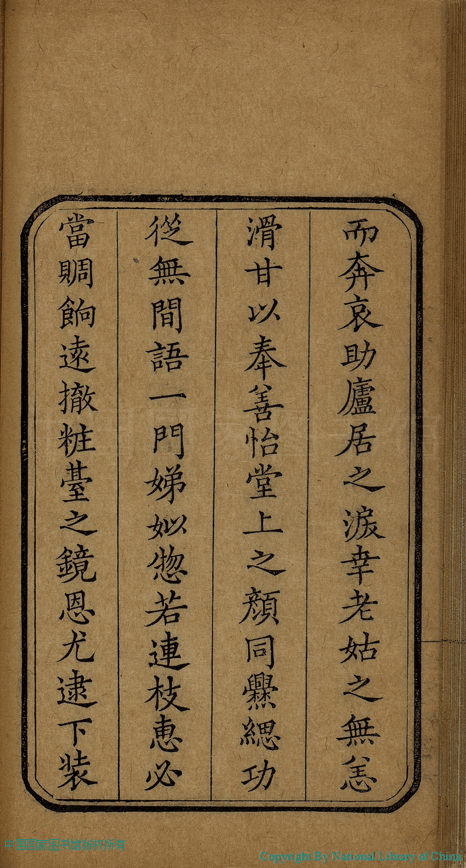 而奔哀助廬居之淚幸老姑之無恙
滑甘以奉善怡堂上之顏同爨緦功
從無間語一門娣姒惣若連枝惠必
當賙餉遠撤粧臺之鏡恩尤逮下装
Copyright By National Library of China